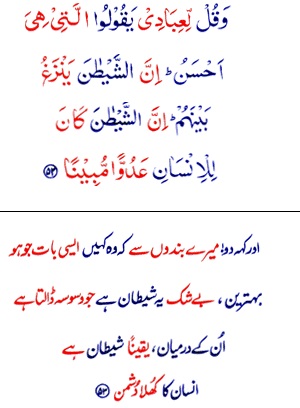 وَقُلْ لِّعِبَادِيْ يَقُوْلُوا الَّتِيْ هِيَ
اَحْسَنُ ؕ اِنَّ الشَّيْطٰنَ يَنْزَغُ
بَيْنَهُمْ ؕ اِنَّ الشَّيْطٰنَ كَانَ
لِلْاِنْسَانِ عَدُوًّا مُّبِيْنًا ﴿۵۳﴾
اور کہہ دو! میرے بندوں سے کہ وہ کہیں ایسی بات جو ہو
بہترین ، بے شک یہ شیطان ہے جو وسوسہ ڈالتا ہے
اُن کے درمیان، یقیناً شیطان ہے
انسان کا کُھلا دُشمن ﴿۵۳﴾